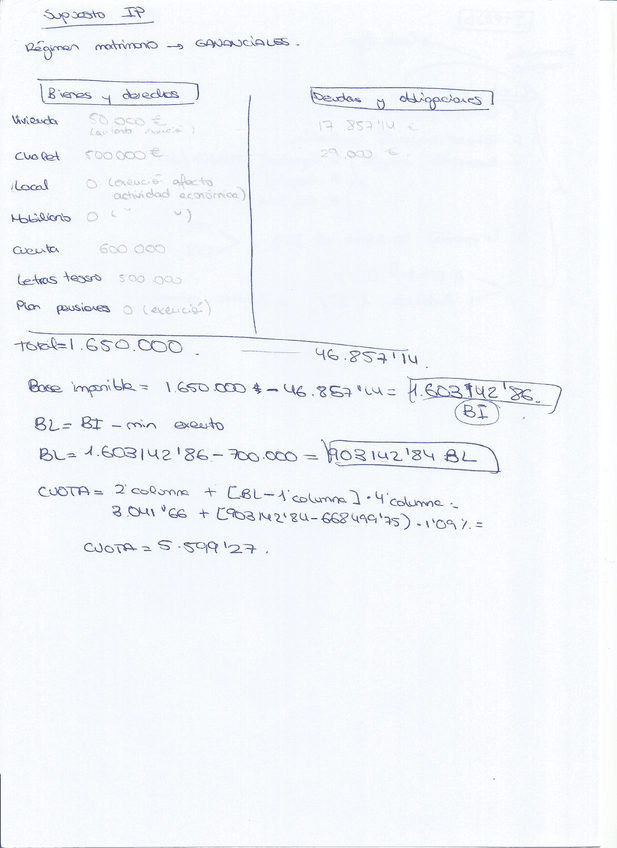 Supuesto IP
Régimen matrimonio → GANANCIALES.
Bienes y derechos
Deudas y obligaciones
Vivienda 50.000 € 17.857'14 €
Chalet 500000 € 29.000 €
Local 0 (exención afecto
actividad económica)
Mobiliario 0 ( " " )
Cuenta 600.000
Letras tesoro 500.000
Plan pensiones 0 (exención)
Total = 1.650.000. 46.857'14.
Base imponible = 1.650.000 - 46.857'14 = 1.603142'86.
BI
BL = BI - min exento
BL = 1.603142'86 - 700.000 = 903142'84 BL
CUOTA = 2ª columna + [BL - 1ª columna] · 4ª columna =
3.041'66 + [903142'84 - 668499'75) · 1'09 % =
CUOTA = 5.599'27.